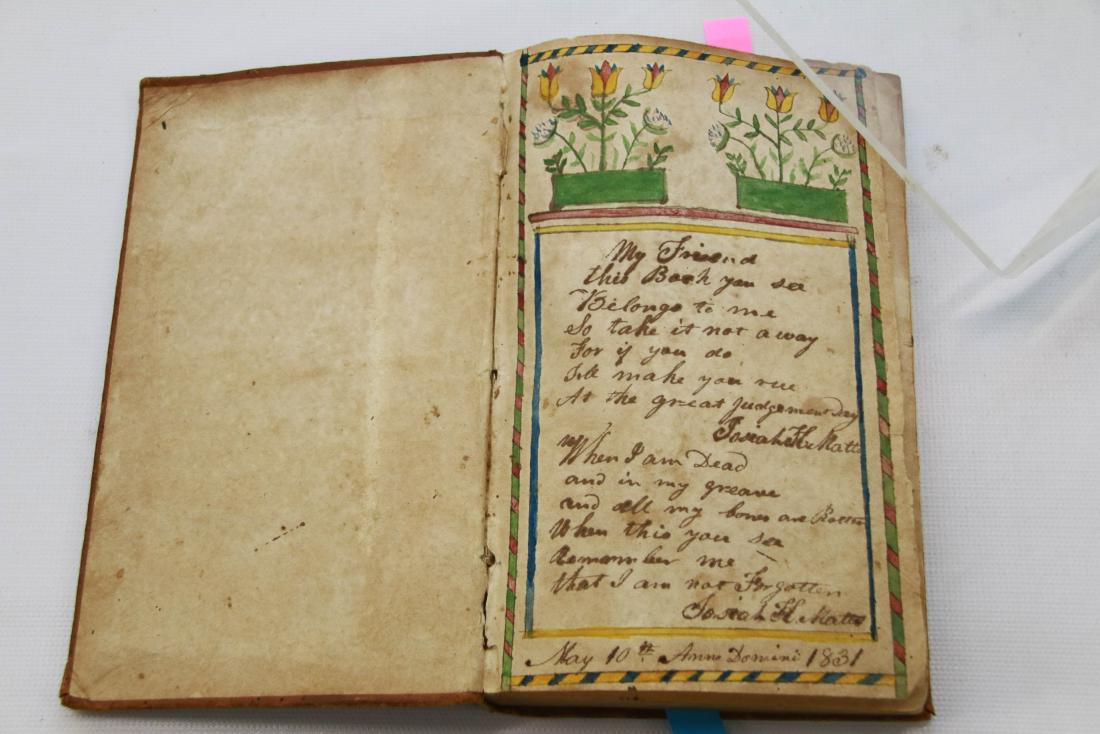 My Friend
this Book you see
Belongs to me
So take it not a way
For if you do
Ill make you rue
At the great judgement Day
Josiah H. Matts
When I am Dead
and in my greave
and all my bones are Rotten
When this you see
Remember me
that I am not Forgotten
Josiah H. Matts
May 10th Anno Domini 1831